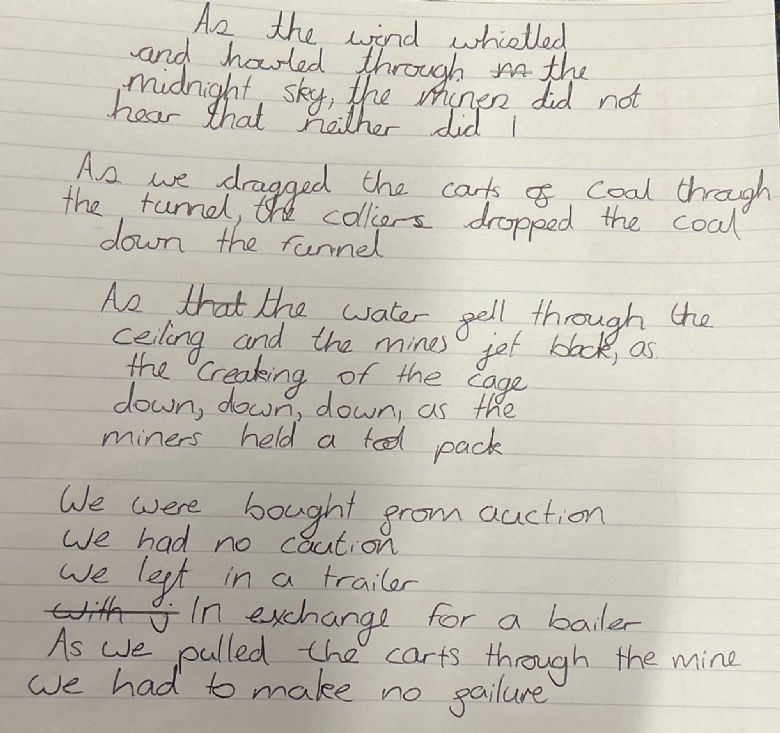 As the wind whistled
and howled through m the
midnight sky, the miners did not
hear that neither did I
As we dragged the carts of coal through
the tunnel, the colliers dropped the coal
down the funnel
As that the water fell through the
ceiling and the mines jet black, as
the creaking of the cage
down, down, down, as the
miners held a tool pack
We were bought from auction
We had no caution
We left in a trailer
with j In exchange for a bailer
As we pulled the carts through the mine
We had to make no failure